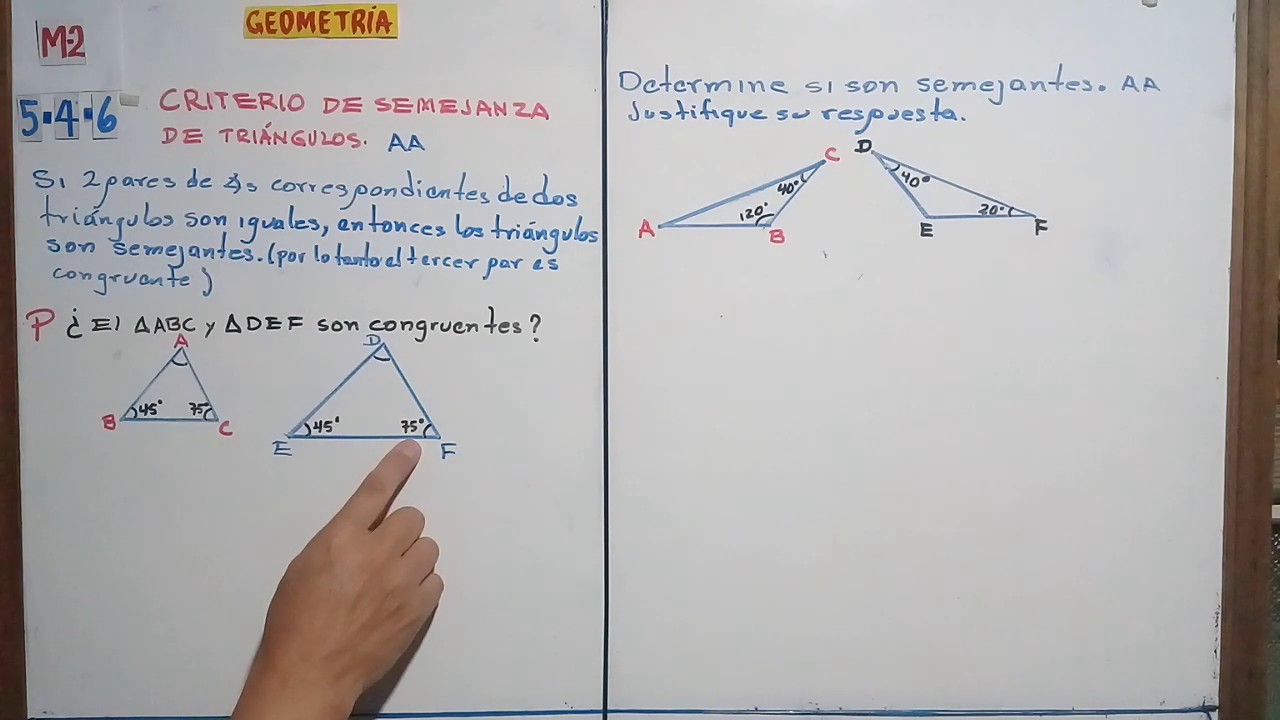 GEOMETRÍA
M-2
5·4·6
CRITERIO DE SEMEJANZA
DE TRIÁNGULOS. AA
Si 2 pares de ∡s correspondientes de dos
triángulos son iguales, entonces los triángulos
son semejantes. (por lo tanto el tercer par es
congruente)
P ¿El ΔABC y ΔDEF son congruentes?
A
45°
75°
B
C
D
45°
75°
E
F
Determine si son semejantes. AA
Justifique su respuesta.
C
40°
120°
A
B
D
40°
20°
E
F